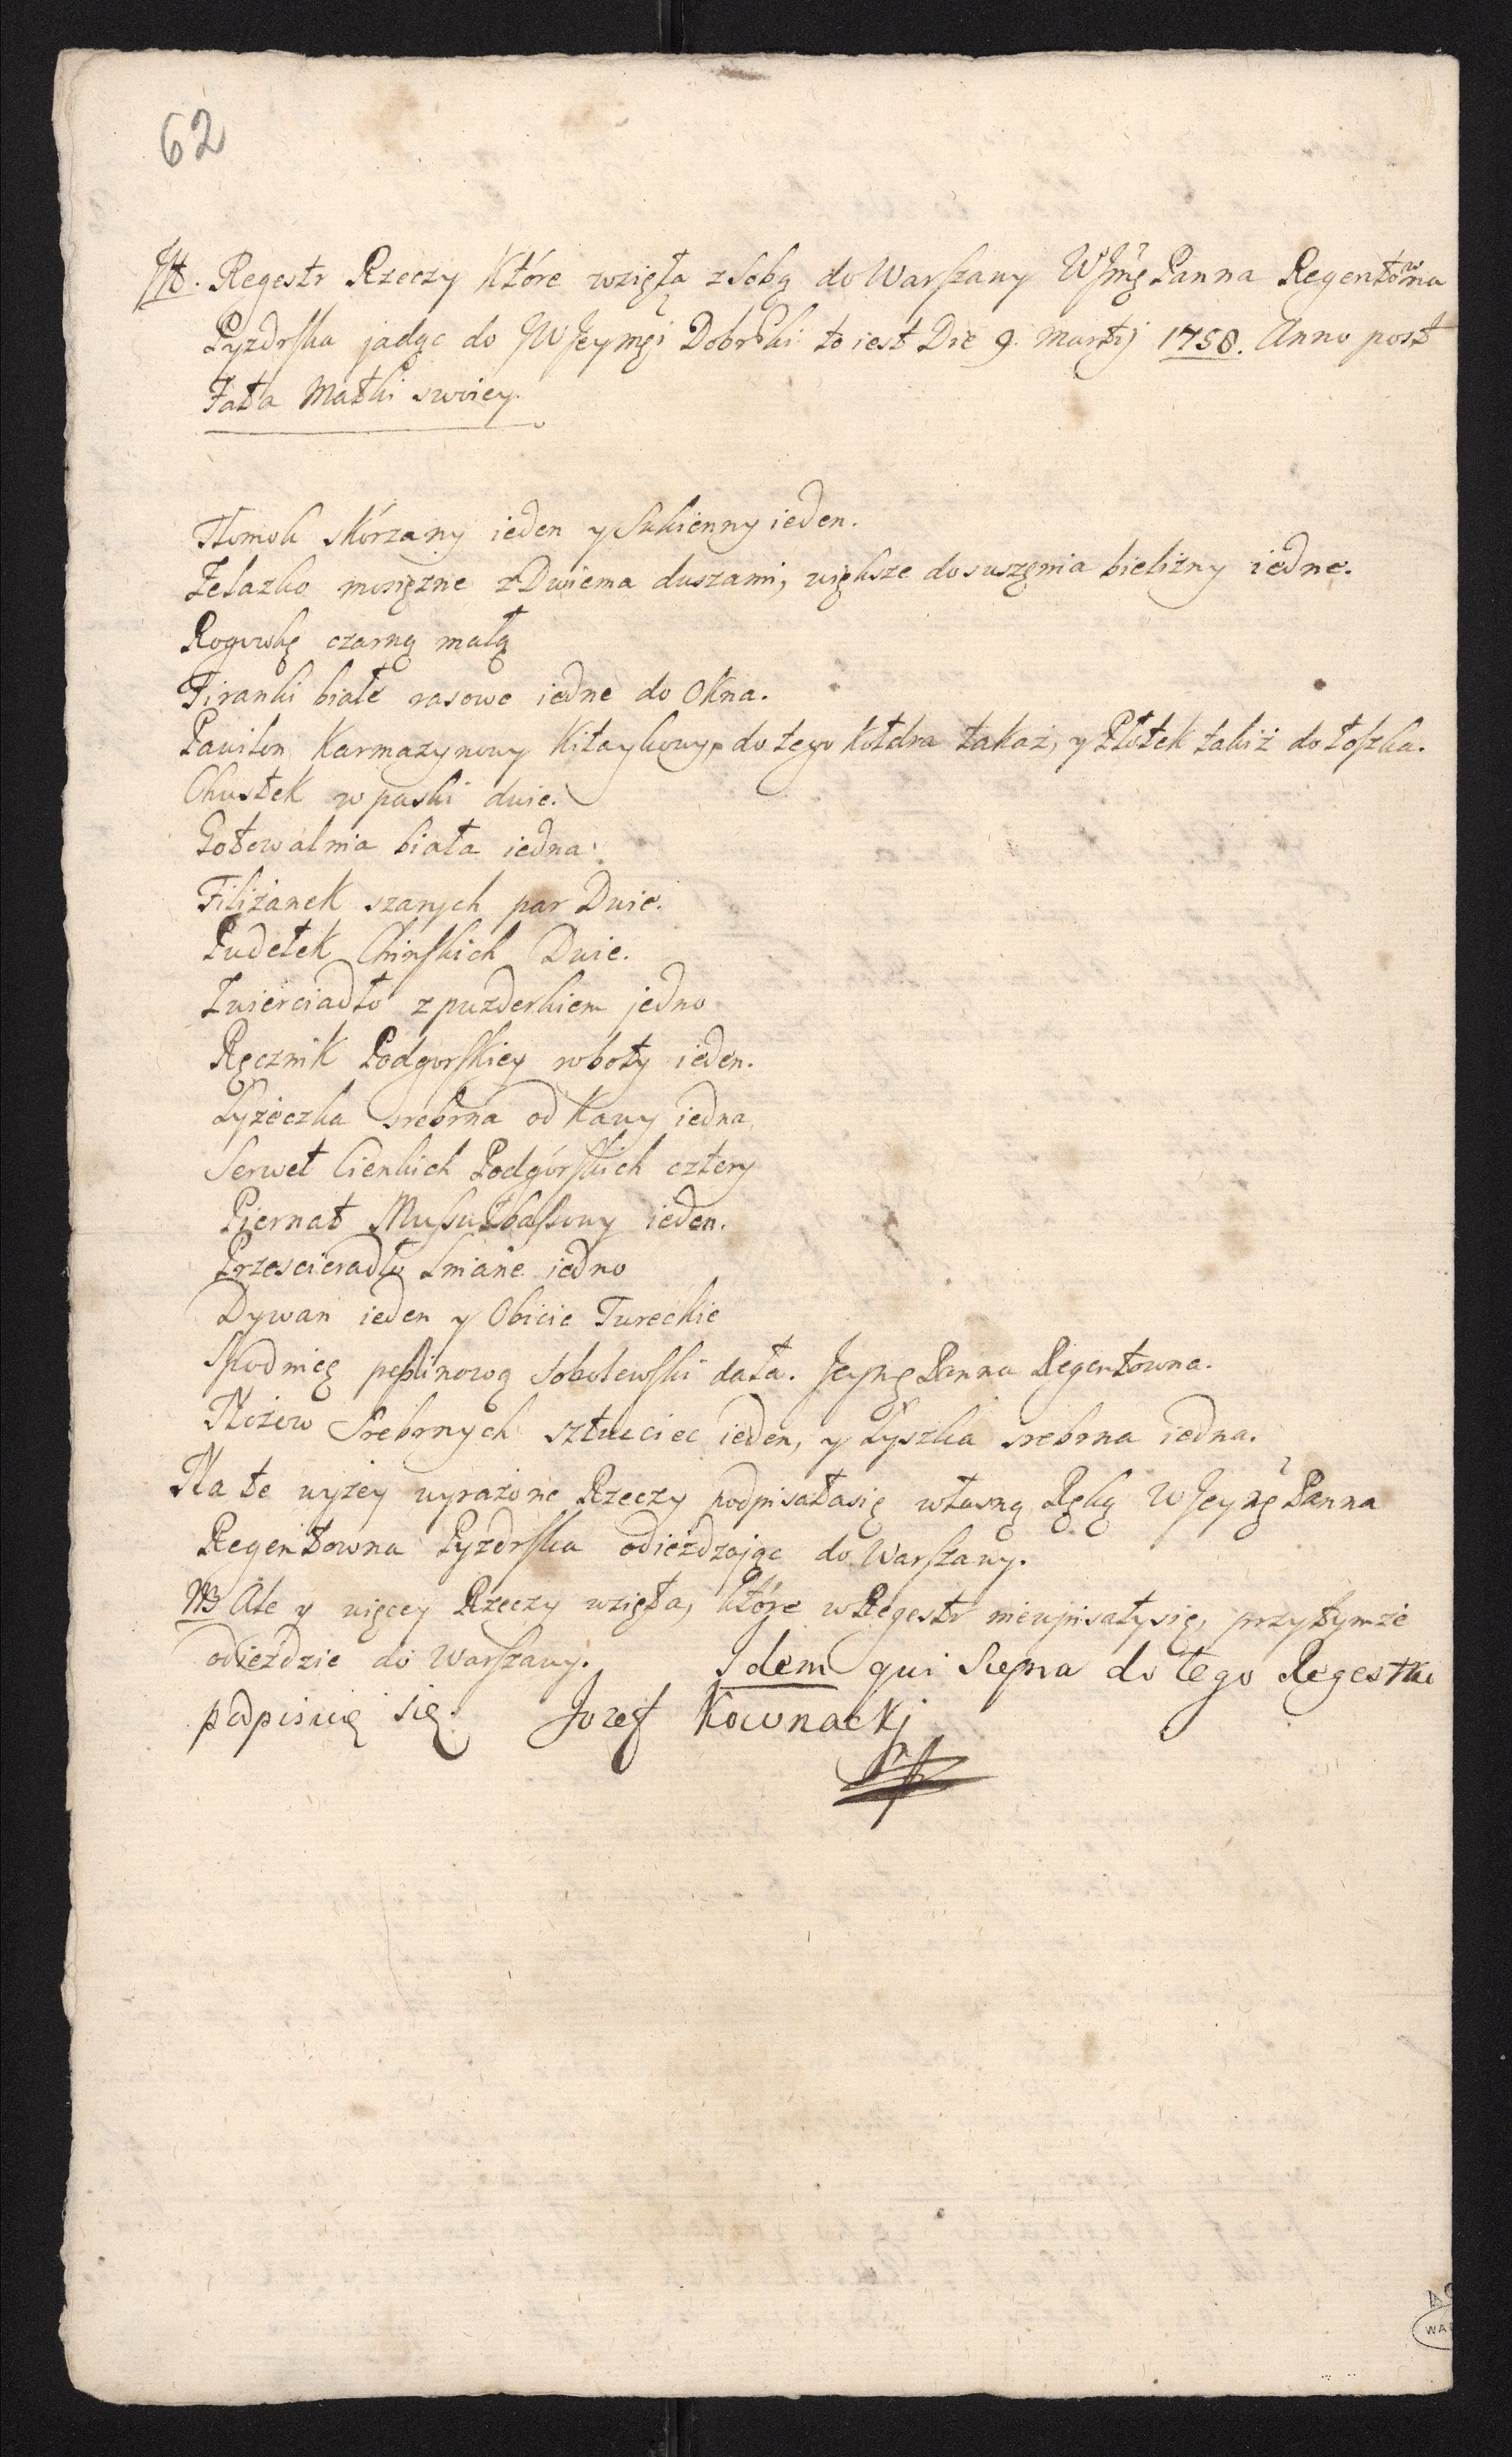 62
It. Regestr Rzeczy Które wzięła z sobą do Warszawy WJmę Panna Regentowna
Pyzdrska jadąc do JWJeymęi Dobrski to iest Die 9. Martij 1758. Anno post
Fata Matki swoiey.
Tłomok skórzany ieden y Sukienny ieden.
Zelazko mosiężne z Dwiema duszami, większe do suszęnia bielizny iedne.
Rogowkę czarną małą
Firanki białe rasowe iedne do Okna.
Pawilon Karmazynowy Kitaykowy, do tego kołdra takaż, y Płotek takiż do łoszka.
Chustek w paski dwie.
Gotowalnia biała iedna.
Filiżanek szarych par Dwie.
Pudełek Chinskich Dwie.
Zwierciadło z puzderkiem jedno
Ręcznik Podgorskiey roboty ieden.
Łyżeczka srebrna od Kawy iedna
Serwet Cienkich Podgórskich cztery
Piernat ieden.
Przescieradło Lniane iedno
Dywan ieden y Obicie Tureckie
Spodnicę Sobolewski dała. Jeymę Panna Regentowna.
Nożow Srebrnych sztuciec ieden, y Łyszka srebrna iedna.
Na te wyżey wyrażone Rzeczy podpisałasię własną Ręką WJeymę Panna
Regentowna Pyzdrska odieżdzając do Warszawy.
NB Ale y więcey Rzeczy wzięła, Które w Regestr niewpisałysię, przytymże
odieździe do Warszawy. Idem qui Supra do tego Regestru
podpisuię się. Jozef Kownackj
WA